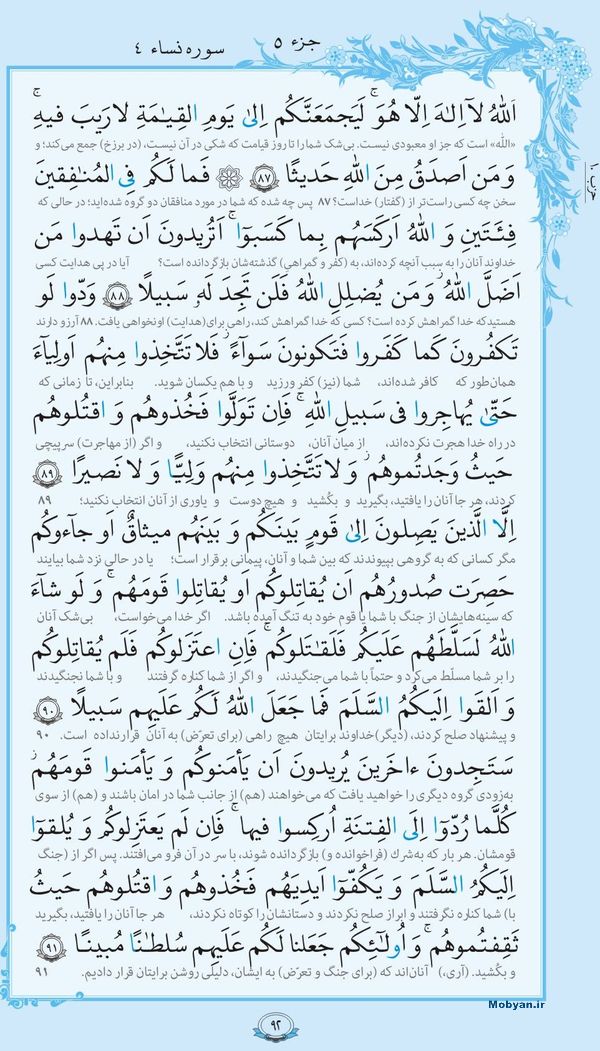 جزء ۵
سوره نساء ۴
حزب ۱۰
اَللّٰهُ لآ اِلٰهَ اِلّا هُوَ ۚ لَيَجمَعَنَّكُم اِلىٰ يَومِ القِيٰمَةِ لا رَيبَ فيهِ ۗ
«الله» است که جز او معبودی نیست. بی‌شک شما را تا روز قیامت که شکی در آن نیست، (در برزخ) جمع می‌کند؛ و
وَ مَن اَصدَقُ مِنَ اللّٰهِ حَديثًا ﴿۸۷﴾ فَما لَكُم فِى المُنٰفِقينَ
سخن چه کسی راست‌تر از (گفتار) خداست؟ ۸۷ پس چه شده که شما در مورد منافقان دو گروه شده‌اید؛ در حالی که
فِئَتَينِ وَ اللّٰهُ اَركَسَهُم بِما كَسَبوا ۚ اَتُريدونَ اَن تَهدوا مَن
خداوند آنان را به سبب آنچه کرده‌اند، به (کفر و گمراهی) گذشته‌شان بازگردانده است؟ آیا در پی هدایت کسی
اَضَلَّ اللّٰهُ ۖ وَ مَن يُضلِلِ اللّٰهُ فَلَن تَجِدَ لَهُ سَبيلًا ﴿۸۸﴾ وَدّوا لَو
هستید که خدا گمراهش کرده است؟ کسی که خدا گمراهش کند، راهی برای (هدایت) او نخواهی یافت. ۸۸ آرزو دارند
تَكفُرونَ كَما كَفَروا فَتَكونونَ سَوآءً ۖ فَلا تَتَّخِذوا مِنهُم اَولِيآءَ
همان‌طور که کافر شده‌اند، شما (نیز) کفر ورزید و با هم یکسان شوید. بنابراین، تا زمانی که
حَتّىٰ يُهاجِروا فى سَبيلِ اللّٰهِ ۚ فَاِن تَوَلَّوا فَخُذوهُم وَ اقتُلوهُم
در راه خدا هجرت نکرده‌اند، از میان آنان، دوستانی انتخاب نکنید، و اگر (از مهاجرت) سرپیچی
حَيثُ وَجَدتُموهُم ۖ وَ لا تَتَّخِذوا مِنهُم وَلِيًّا وَ لا نَصيرًا ﴿۸۹﴾
کردند، هر جا آنان را یافتید، بگیرید و بکُشید و هیچ دوست و یاوری از آنان انتخاب نکنید؛ ۸۹
اِلَّا الَّذينَ يَصِلونَ اِلىٰ قَومٍ بَينَكُم وَ بَينَهُم ميثاقٌ اَو جآءوكُم
مگر کسانی که به گروهی بپیوندند که بین شما و آنان، پیمانی برقرار است؛ یا در حالی نزد شما بیایند
حَصِرَت صُدورُهُم اَن يُقاتِلوكُم اَو يُقاتِلوا قَومَهُم ۚ وَ لَو شآءَ
که سینه‌هایشان از جنگ با شما یا قوم خود به تنگ آمده باشد. اگر خدا می‌خواست، بی‌شک آنان
اللّٰهُ لَسَلَّطَهُم عَلَيكُم فَلَقٰتَلوكُم ۚ فَاِنِ اعتَزَلوكُم فَلَم يُقاتِلوكُم
را بر شما مسلّط می‌کرد و حتماً با شما می‌جنگیدند، و اگر از شما کناره گرفتند و با شما نجنگیدند
وَ اَلقَوا اِلَيكُمُ السَّلَمَ فَما جَعَلَ اللّٰهُ لَكُم عَلَيهِم سَبيلًا ﴿۹۰﴾
و پیشنهاد صلح کردند، (دیگر) خداوند برایتان هیچ راهی (برای تعرّض) به آنان قرار نداده است. ۹۰
سَتَجِدونَ ءاخَرينَ يُريدونَ اَن يَأمَنوكُم وَ يَأمَنوا قَومَهُم ۖ
به‌زودی گروه دیگری را خواهید یافت که می‌خواهند (هم) از جانب شما در امان باشند و (هم) از سوی
كُلَّما رُدّوٓا اِلَى الفِتنَةِ اُركِسوا فيها ۚ فَاِن لَم يَعتَزِلوكُم وَ يُلقوٓا
قومشان. هر بار که به‌شرک (فراخوانده و) بازگردانده شوند، با سر در آن فرو می‌افتند. پس اگر از (جنگ
اِلَيكُمُ السَّلَمَ وَ يَكُفّوٓا اَيدِيَهُم فَخُذوهُم وَ اقتُلوهُم حَيثُ
با) شما کناره نگرفتند و ابراز صلح نکردند و دستانشان را کوتاه نکردند، هر جا آنان را یافتید، بگیرید
ثَقِفتُموهُم ۚ وَ اُولٰئِكُم جَعَلنا لَكُم عَلَيهِم سُلطٰنًا مُبينًا ﴿۹۱﴾
و بکُشید. (آری،) آنان‌اند که (برای جنگ و تعرّض) به ایشان، دلیلی روشن برایتان قرار دادیم. ۹۱
۹۲
Mobyan.ir